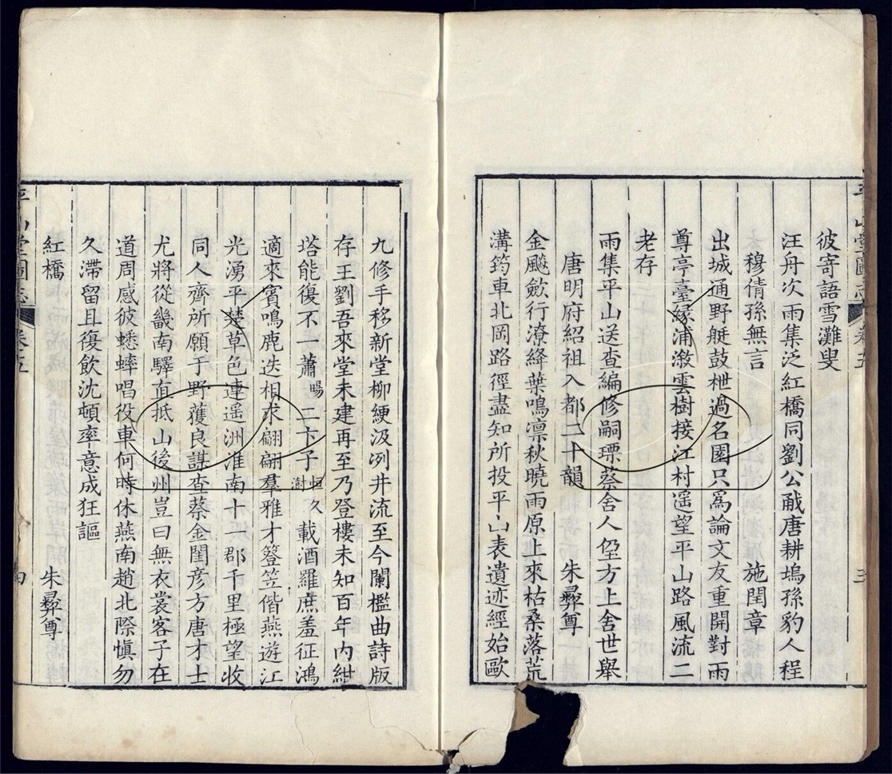 平山堂圖志 卷五
彼寄語雪灘叟
汪舟次雨集泛紅橋同劉公㦷唐耕塢孫豹人程
穆倩孫無言 施閏章
出城通野艇鼓枻過名園只為論文友重開對雨
尊亭臺緣浦漵雲樹接江村遥望平山路風流二
老存
雨集平山送查編修嗣瑮蔡舍人方上舍世舉
唐明府紹祖入都二十韻 朱彞尊
金颷歛行潦絳葉鳴凛秋曉雨原上來枯桑落荒
溝筍車北岡路徑盡知所投平山表遺迹經始歐
九修手移新堂柳綆汲洌井流至今闌檻曲詩版
存王劉吾來堂未建再至乃登樓未知百年內紺
塔能復不一蕭暘二卞子恒久澍載酒羅庶羞征鴻
適來賓鳴鹿迭相求翩翩羣雅才簦笠偕燕遊江
光湧平楚草色連遥洲淮南十一郡千里極望收
同人齊所願于野蒦良謀查蔡金閨彦方唐才士
尤將從畿南驛直抵山後州豈曰無衣裳客子在
道周感彼蟋蟀唱役車何時休燕南趙北際愼勿
久滯留且復飲沈頓率意成狂謳
紅橋 朱彞尊
平山堂圖志 卷五